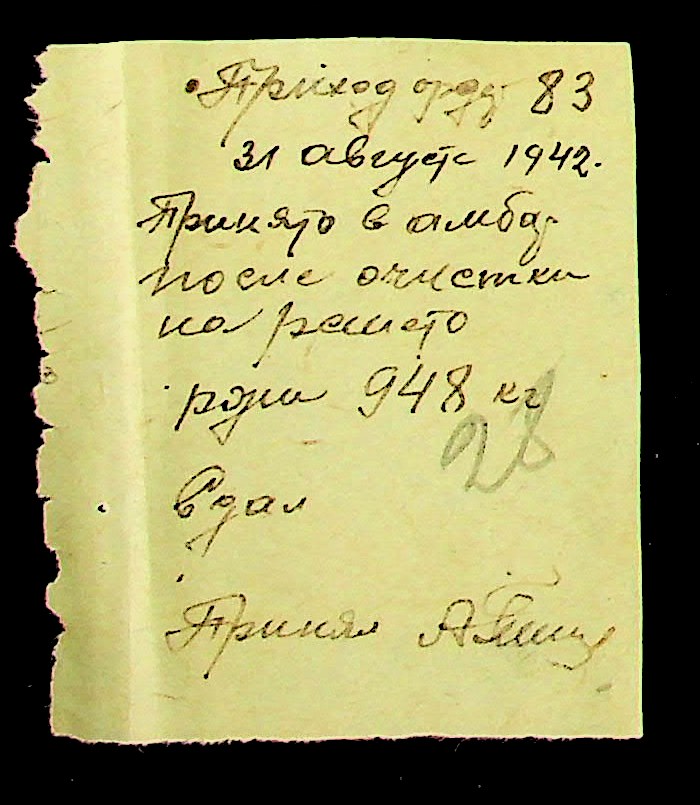 Приход орд 83
31 август 1942.
Принято в амбар
после очистки
на решето
ржи 948 кг
28
Сдал
Принял